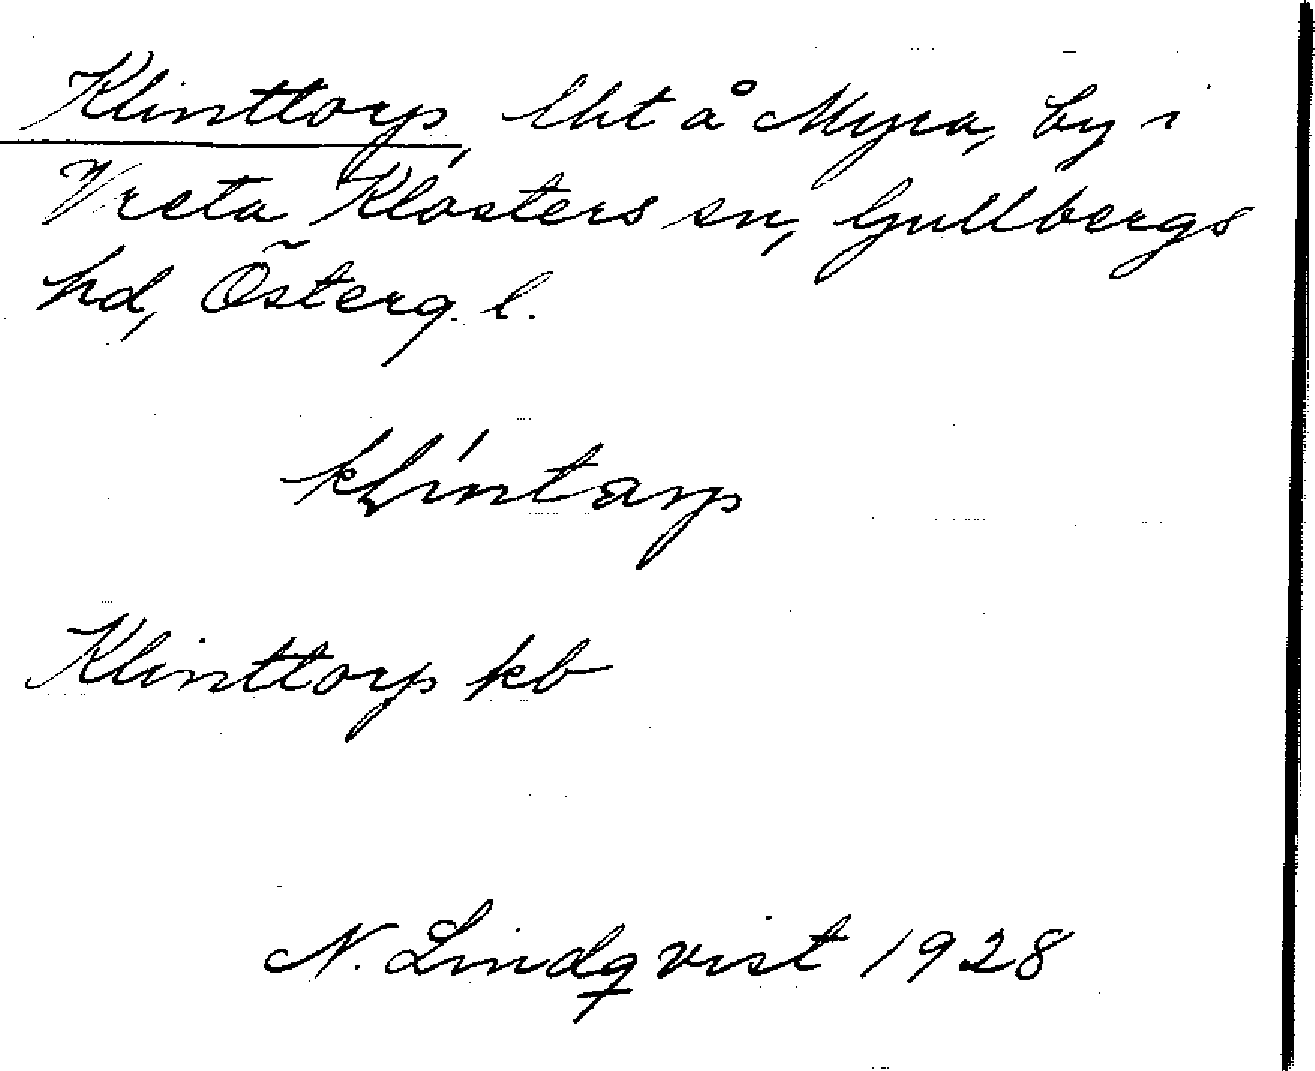 Klinttorp, lht å Myra, by i
Vreta Klosters sn, Gullbergs
hd, Österg. l.
klíntarp
Klinttorp kb
N. Lindqvist 1928